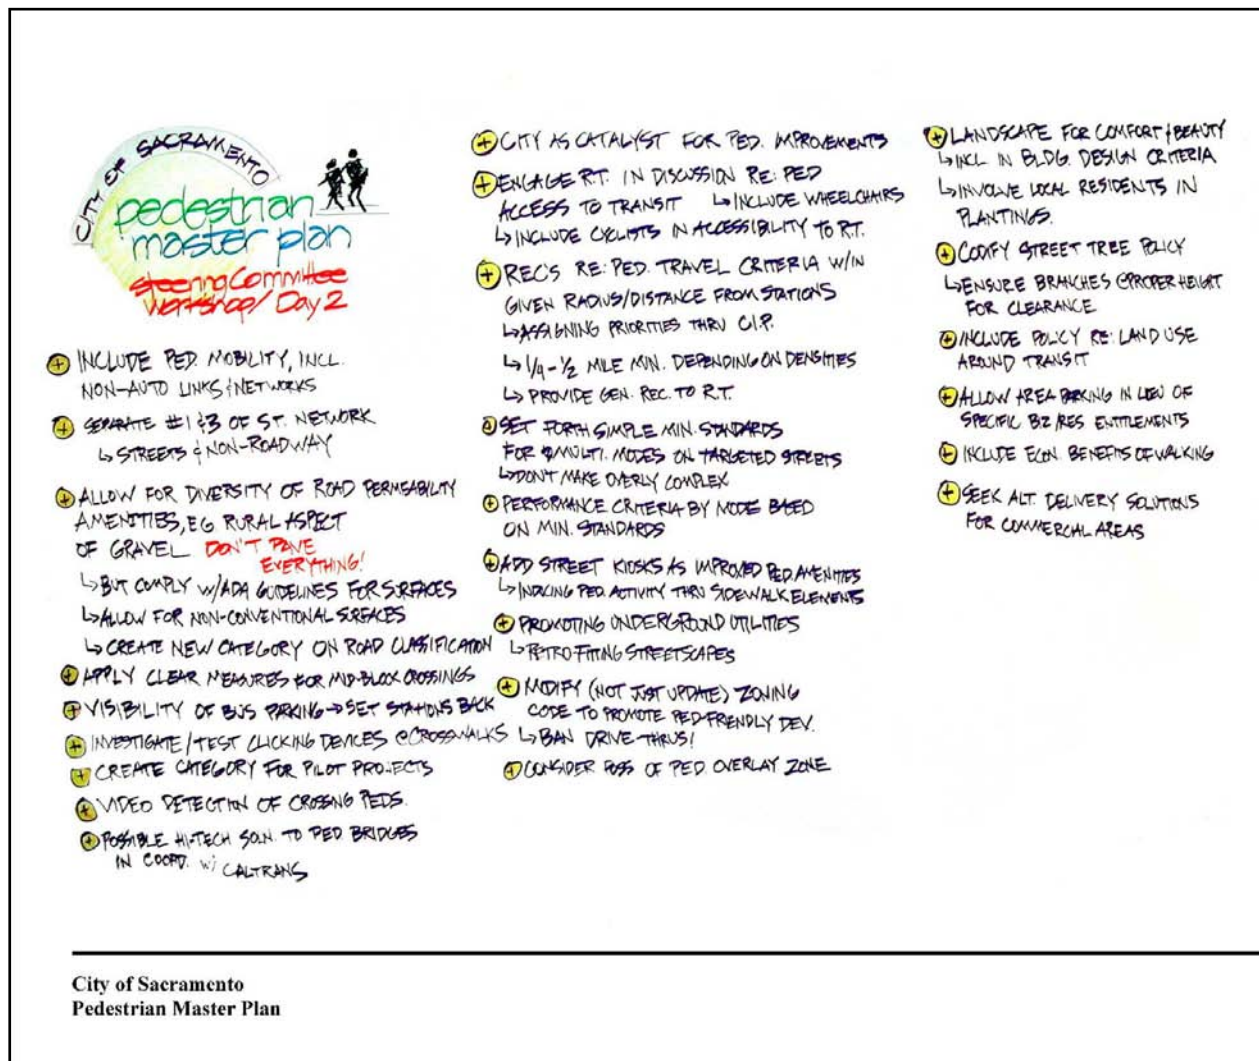 CITY OF SACRAMENTO
pedestrian
master plan
Steering Committee
Workshop/ Day 2
+ INCLUDE PED. MOBILITY, INCL.
NON-AUTO LINKS & NETWORKS
+ SEPARATE #1 & 3 OF ST. NETWORK
↳ STREETS & NON-ROADWAY
+ ALLOW FOR DIVERSITY OF ROAD PERMEABILITY
AMENITIES, EG RURAL ASPECT
OF GRAVEL DON'T PAVE
EVERYTHING!
↳ BUT COMPLY W/ADA GUIDELINES FOR SURFACES
↳ ALLOW FOR NON-CONVENTIONAL SURFACES
↳ CREATE NEW CATEGORY ON ROAD CLASSIFICATION
+ APPLY CLEAR MEASURES FOR MID-BLOCK CROSSINGS
+ VISIBILITY OF BUS PARKING → SET STATIONS BACK
+ INVESTIGATE/TEST CLICKING DEVICES @ CROSSWALKS
+ CREATE CATEGORY FOR PILOT PROJECTS
+ VIDEO DETECTION OF CROSSING PEDS.
+ POSSIBLE HI-TECH SOLN. TO PED BRIDGES
IN COORD. W/ CALTRANS
+ CITY AS CATALYST FOR PED. IMPROVEMENTS
+ ENGAGE R.T. IN DISCUSSION RE: PED
ACCESS TO TRANSIT ↳ INCLUDE WHEELCHAIRS
↳ INCLUDE CYCLISTS IN ACCESSIBILITY TO R.T.
+ REC'S RE: PED. TRAVEL CRITERIA W/IN
GIVEN RADIUS/DISTANCE FROM STATIONS
↳ ASSIGNING PRIORITIES THRU C.I.P.
↳ 1/4 - 1/2 MILE MIN. DEPENDING ON DENSITIES
↳ PROVIDE GEN. REC. TO R.T.
+ SET FORTH SIMPLE MIN. STANDARDS
FOR MULTI. MODES ON TARGETED STREETS
↳ DON'T MAKE OVERLY COMPLEX
+ PERFORMANCE CRITERIA BY MODE BASED
ON MIN. STANDARDS
+ ADD STREET KIOSKS AS IMPROVED PED. AMENITIES
↳ INDUCING PED. ACTIVITY THRU SIDEWALK ELEMENTS
+ PROMOTING UNDERGROUND UTILITIES
↳ RETROFITTING STREETSCAPES
+ MODIFY (NOT JUST UPDATE) ZONING
CODE TO PROMOTE PED-FRIENDLY DEV.
↳ BAN DRIVE-THRUS!
+ CONSIDER POSS OF PED. OVERLAY ZONE
+ LANDSCAPE FOR COMFORT & BEAUTY
↳ INCL. IN BLDG. DESIGN CRITERIA
↳ INVOLVE LOCAL RESIDENTS IN
PLANTINGS.
+ CODIFY STREET TREE POLICY
↳ ENSURE BRANCHES @ PROPER HEIGHT
FOR CLEARANCE
+ INCLUDE POLICY RE: LAND USE
AROUND TRANSIT
+ ALLOW AREA PARKING IN LIEU OF
SPECIFIC BIZ/RES ENTITLEMENTS
+ INCLUDE ECON. BENEFITS OF WALKING
+ SEEK ALT. DELIVERY SOLUTIONS
FOR COMMERCIAL AREAS
City of Sacramento
Pedestrian Master Plan